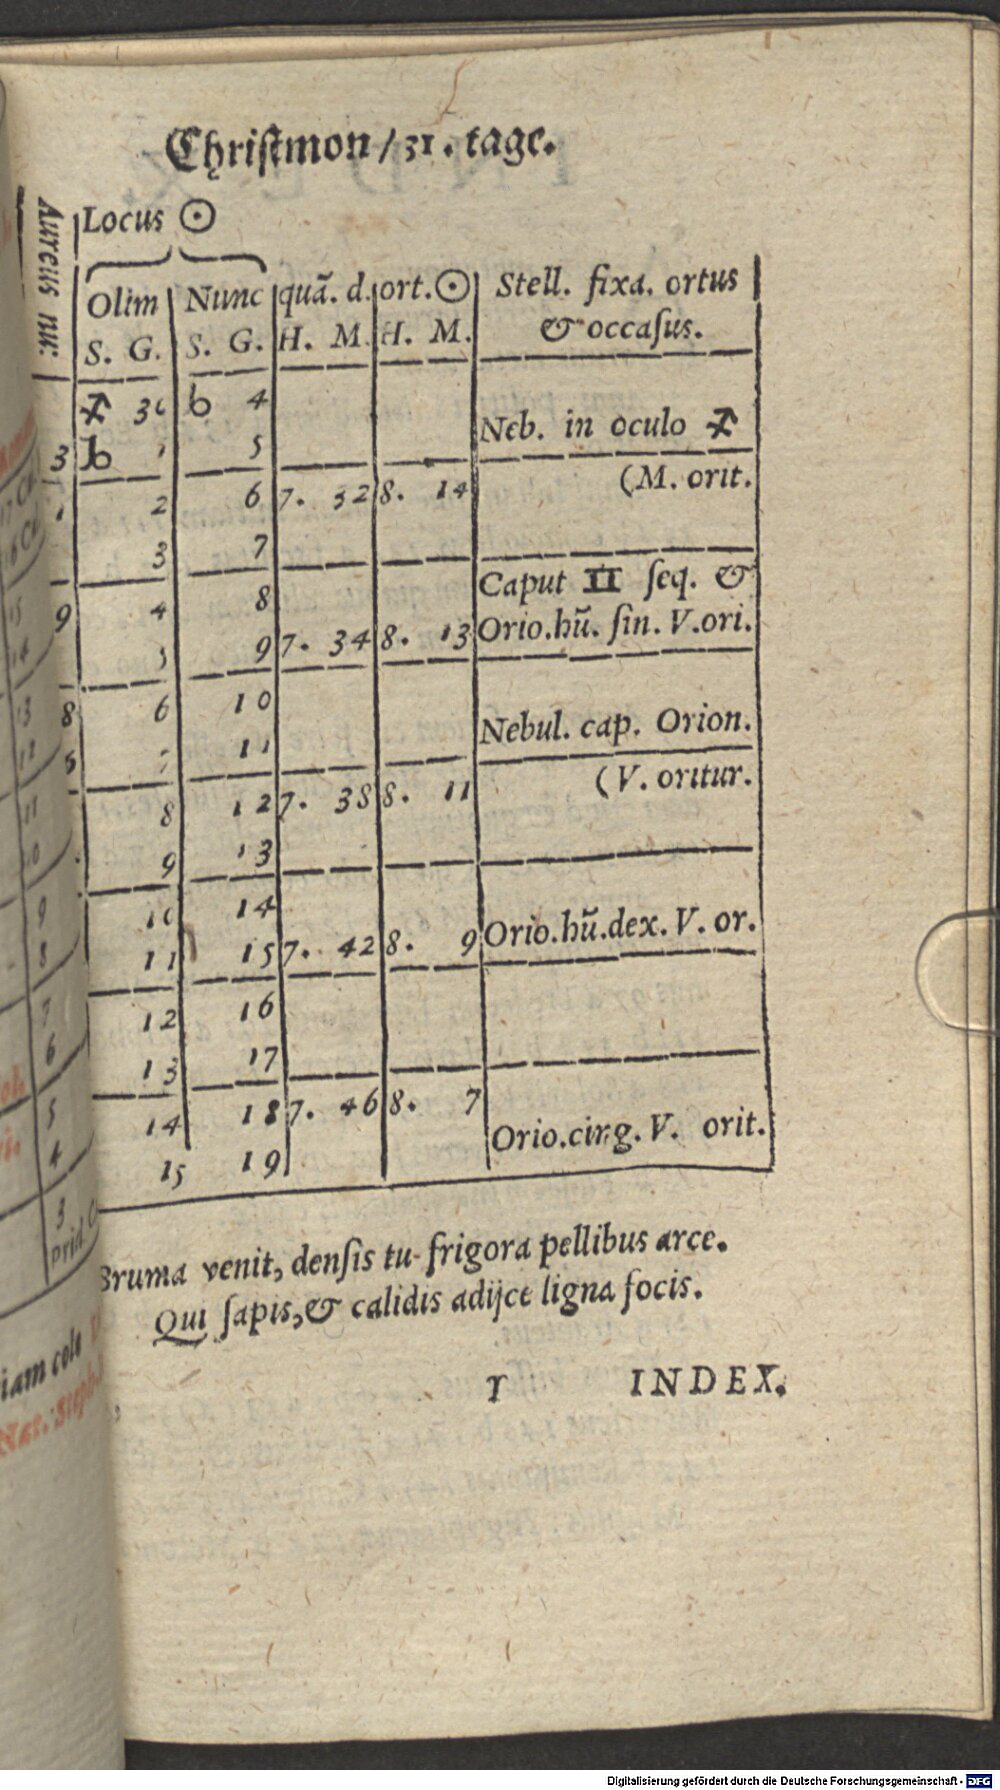 Chriſtmon / 31. tage.
Aureus nu:
Locus ☉
Olim Nunc quã. d. ort. ☉ Stell. fixa. ortus
S. G. S. G. H. M. H. M. & occaſus.
♐ 30 ♑ 4
3 ♑ 1 5 Neb. in oculo ♐
2 6 7. 32 8. 14 (M. orit.
3 7
9 4 8 Caput ♊ ſeq. &
5 9 7. 34 8. 13 Orio.hũ. ſin. V.ori.
8 6 10
5 7 11 Nebul. cap. Orion.
8 12 7. 38 8. 11 (V. oritur.
9 13
10 14
11 15 7. 42 8. 9 Orio.hũ.dex. V. or.
12 16
13 17
14 18 7. 46 8. 7
15 19 Orio.cing. V. orit.
Bruma venit, denſis tu frigora pellibus arce.
Qui ſapis, & calidis adijce ligna focis.
Y INDEX.
17
16
15
14
13
12
11
10
9
8
7
6
5
4
3
Prid.
iam cole
Nat. Steph.
Digitalisierung gefördert durch die Deutsche Forschungsgemeinschaft - DFG